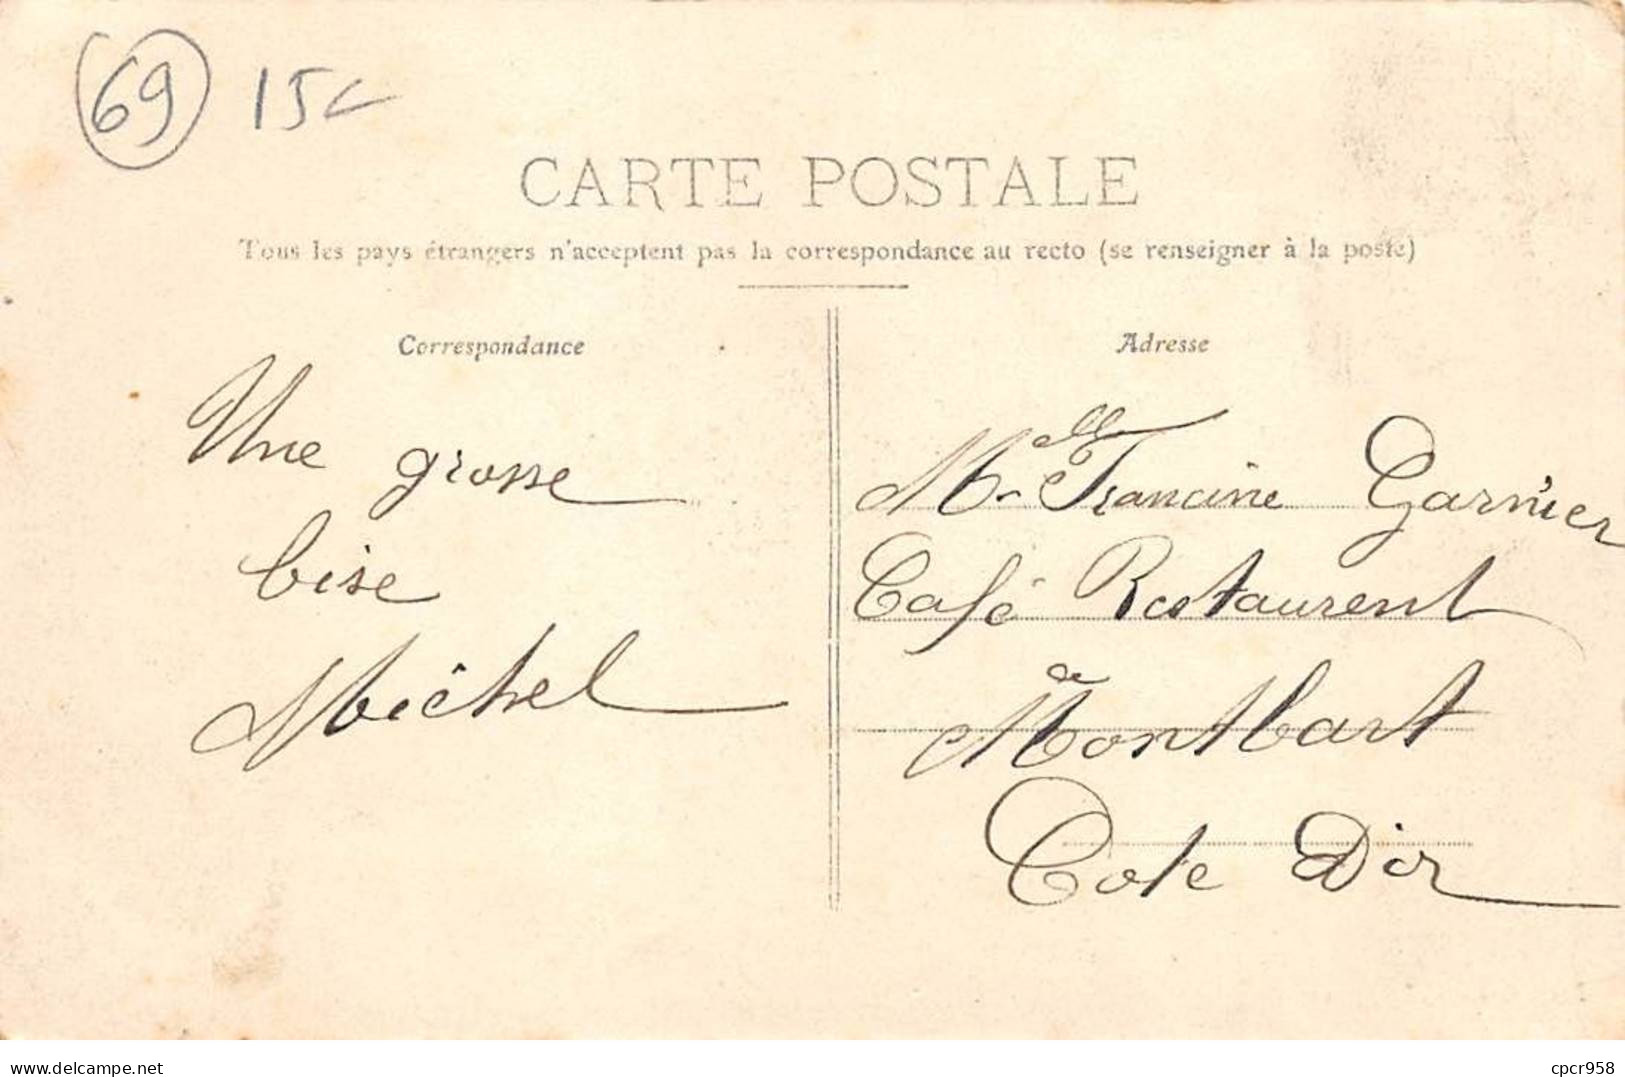 69 15c
CARTE POSTALE
Tous les pays étrangers n'acceptent pas la correspondance au recto (se renseigner à la poste)
Correspondance
Une grosse
bise
Michel
Adresse
Melle Francine Garnier
Café Restaurent
de
Montbart
Cote D'or
www.delcampe.net
cpcr958